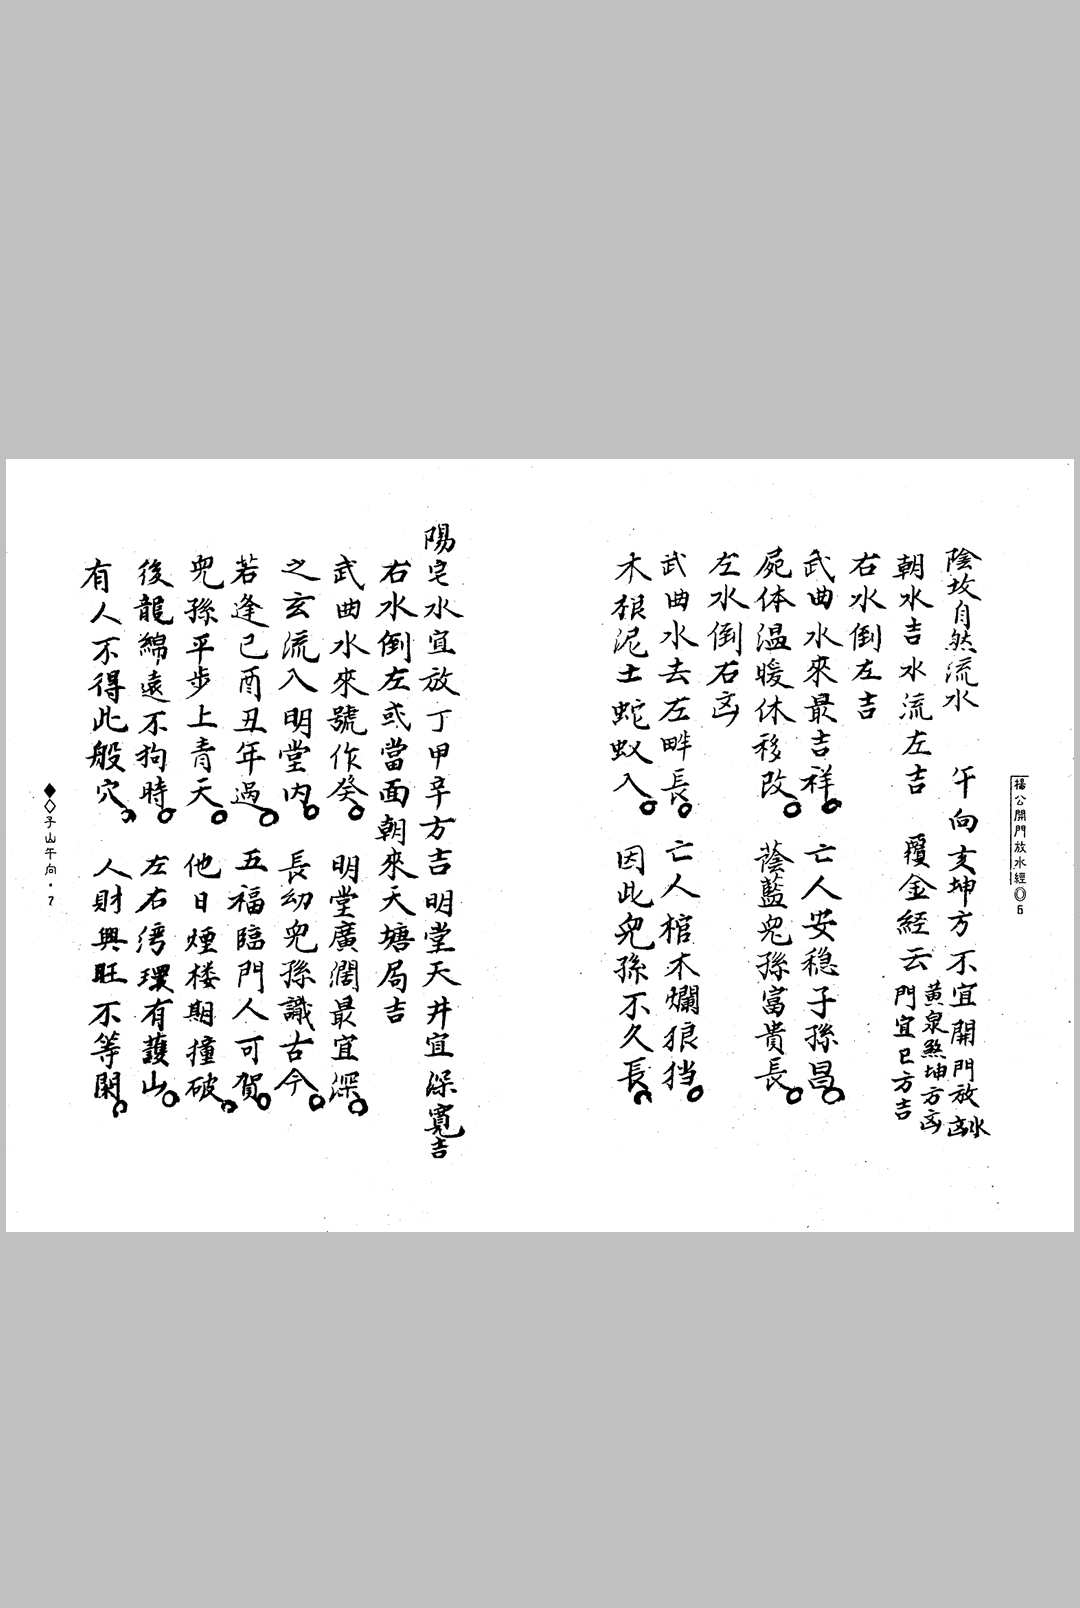 楊公開門放水經◎6
陰坟自然流水 午向亥坤方不宜開門放水凶
黃泉煞坤方凶
朝水吉水流左吉 金経云門宜巳方吉
右水倒左吉
武曲水來最吉祥 亡人安穏子孫昌
屍体温暖休移改 蔭藍児孫富貴長
左水倒右凶
武曲水去左畔長 亡人棺木爛狼
木根泥土蛇蚁入 因此児孫不久長
陽宅水宜放丁甲辛方吉明堂天井宜深寛吉
右水倒左或當面朝來天塘局吉
武曲水來號作癸 明堂廣濶最宜深
之玄流入明堂内 長幼児孫識古今
若逢己酉丑年過 五福臨門人可賀
児孫平步上青天 他日煙楼期撞破
後龍綿遠不狗時 左右湾環有護山
有人不得此般穴 人財興旺不等閑
◆◇子山午向·7